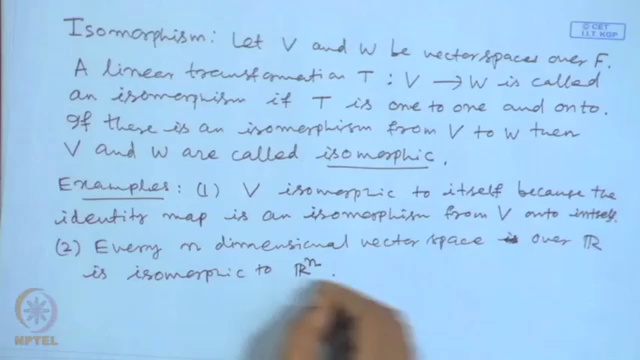 Isomorphism: Let V and W be vector spaces over F.
A linear transformation T : V → W is called
an isomorphism if T is one to one and onto.
If there is an isomorphism from V to W then
V and W are called isomorphic.
Examples: (1) V isomorphic to itself because the
identity map is an isomorphism from V onto intself.
(2) Every n dimensional vector space is over ℝ
is isomorphic to ℝⁿ.
© CET
I.I.T. KGP
NPTEL